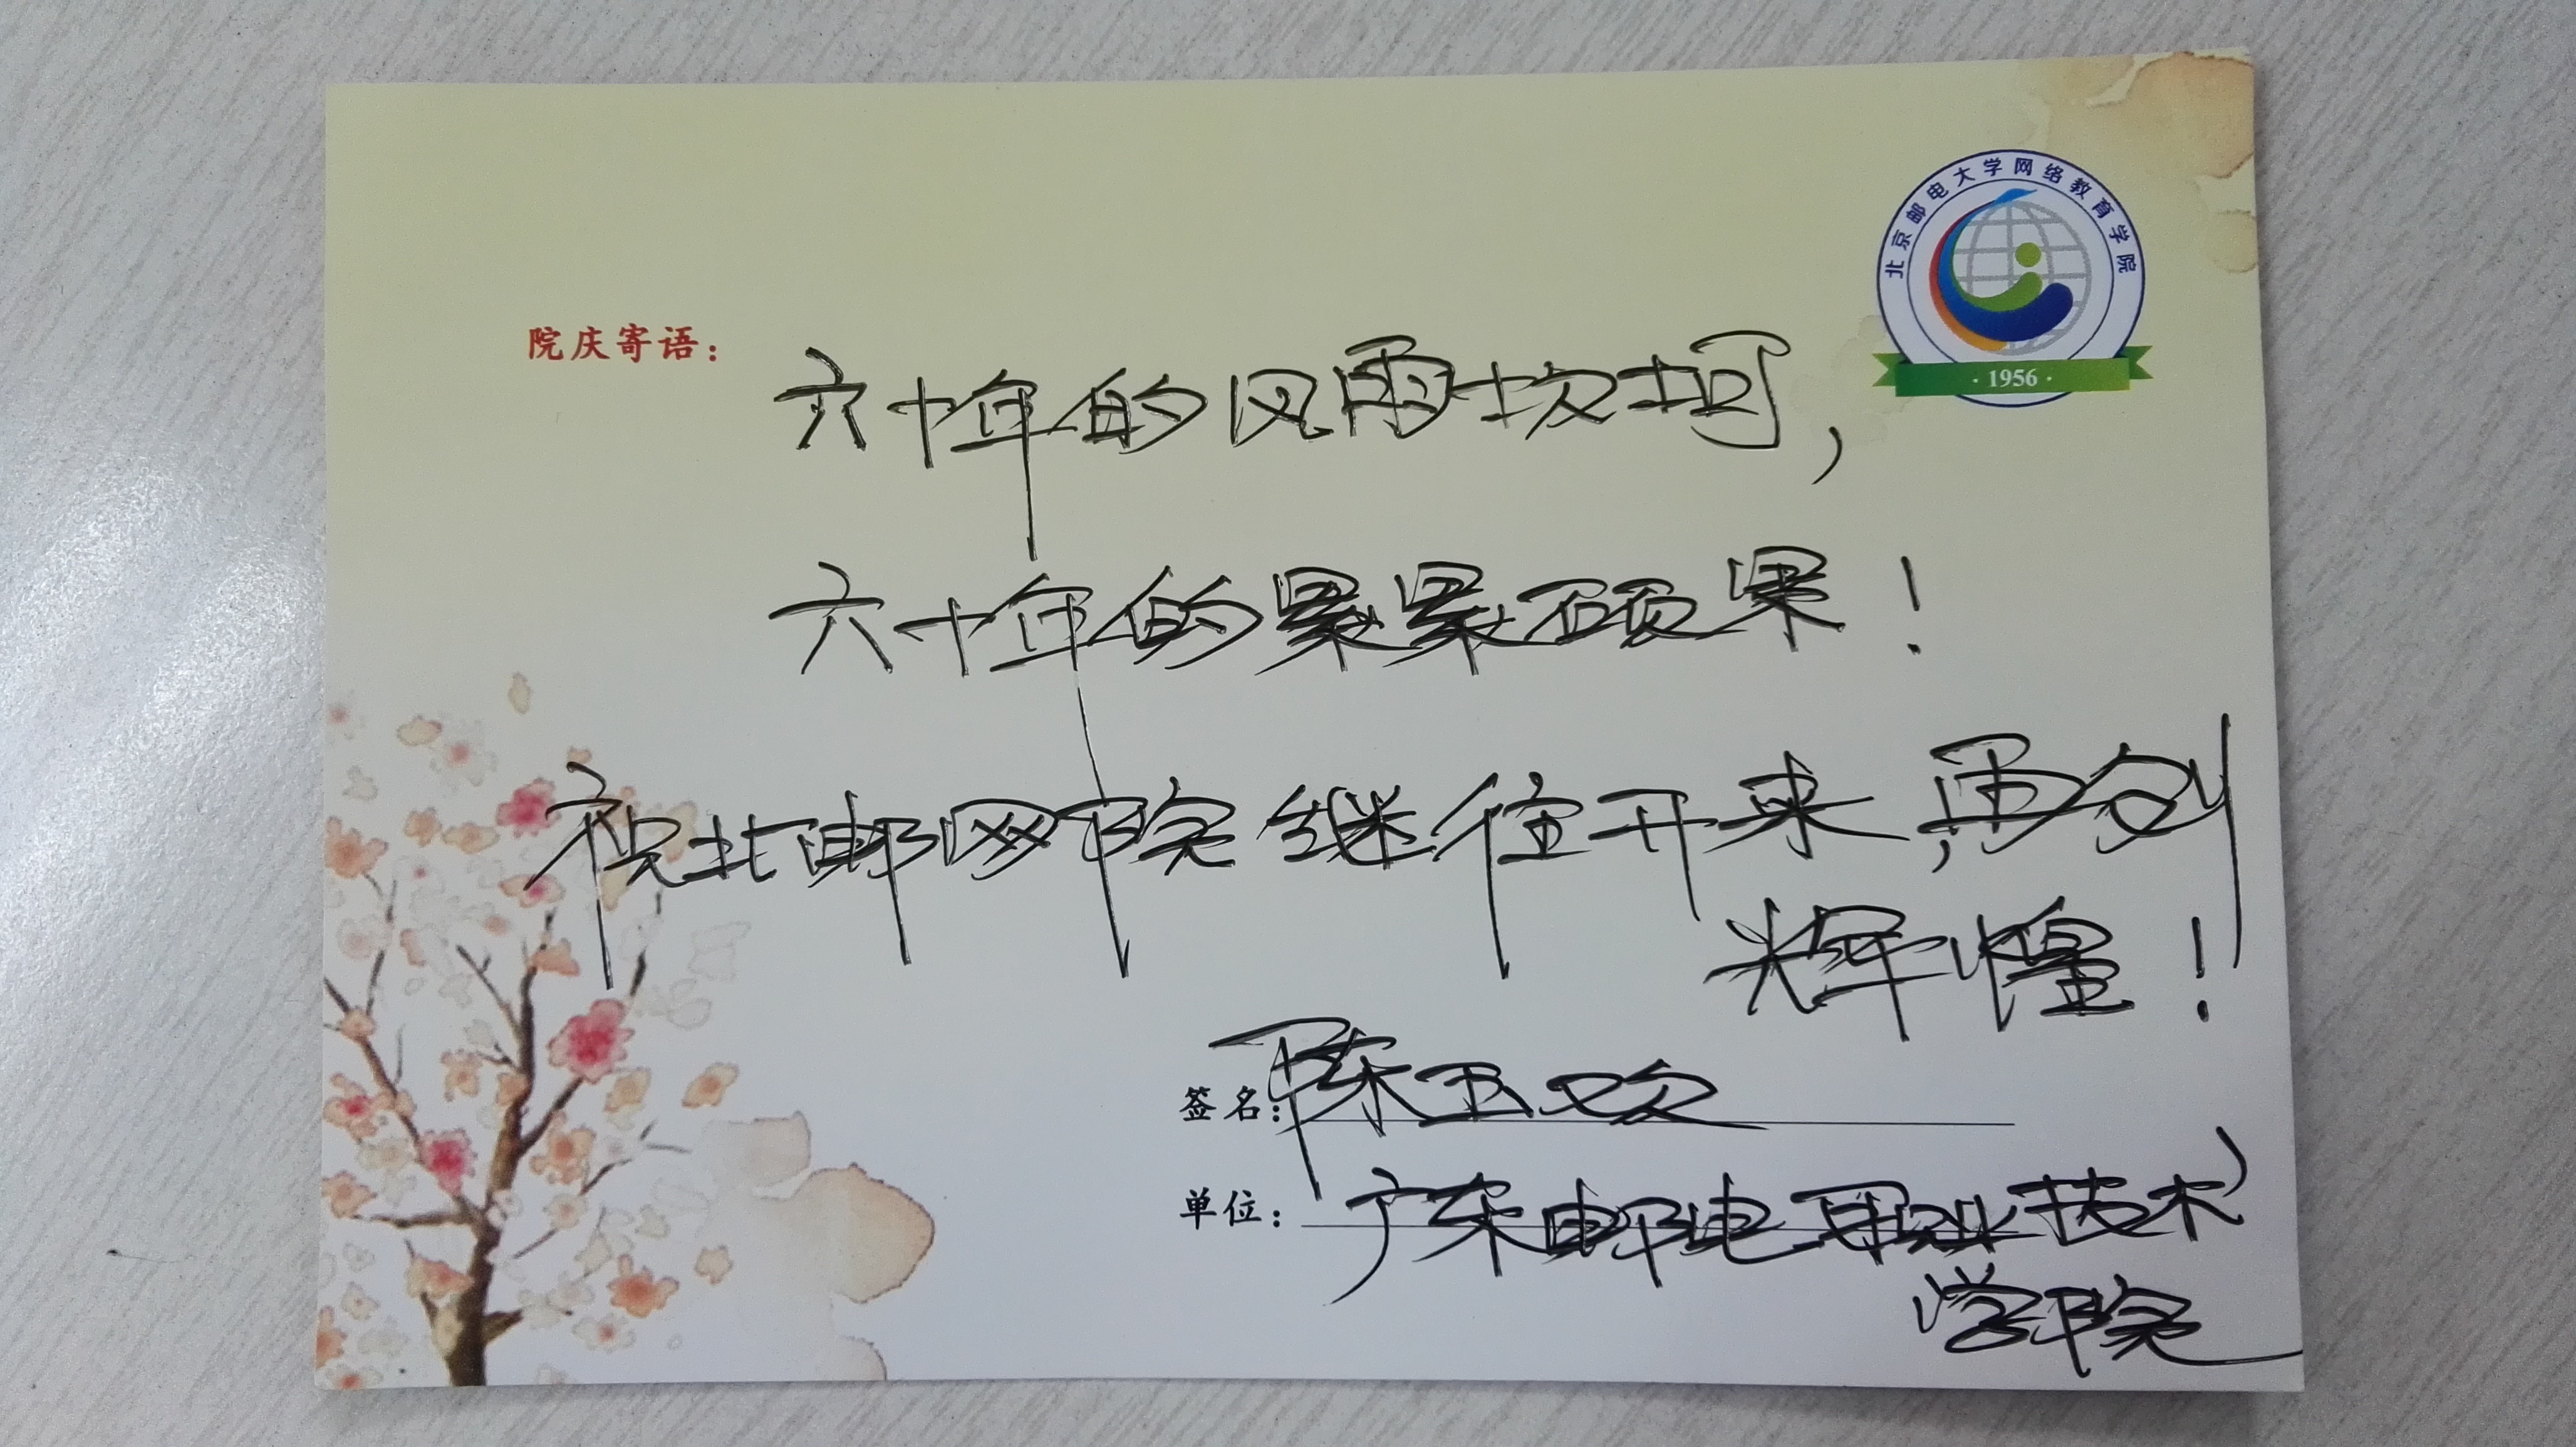 北京邮电大学网络教育学院
· 1956 ·
院庆寄语：
六十年的风雨坎坷，
六十年的累累硕果！
祝北邮网院继往开来，再创
辉煌！
签名：陈玉欢
单位：广东邮电职业技术
学院